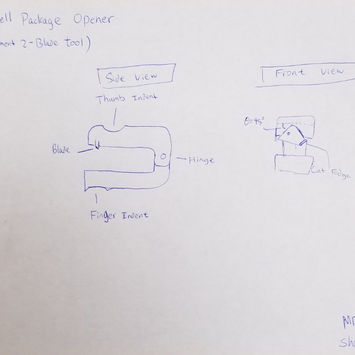 ell Package Opener
ment 2-Blade Tool)
Side View
Front View
Thumb Indent
θ=45°
Blade
Hinge
Cut Edge
Finger Indent
Sh